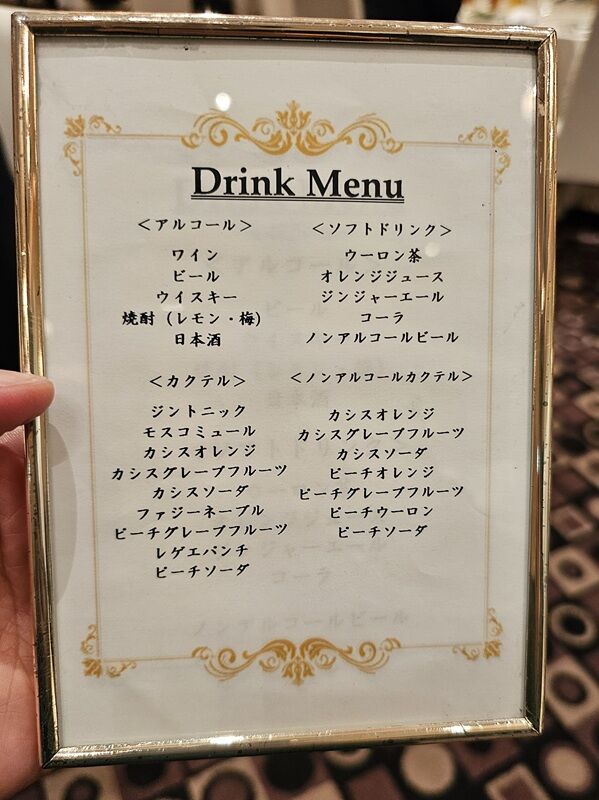 Drink Menu
＜アルコール＞
ワイン
ビール
ウイスキー
焼酎（レモン・梅）
日本酒
＜ソフトドリンク＞
ウーロン茶
オレンジジュース
ジンジャーエール
コーラ
ノンアルコールビール
＜カクテル＞
ジントニック
モスコミュール
カシスオレンジ
カシスグレープフルーツ
カシスソーダ
ファジーネーブル
ピーチグレープフルーツ
レゲエパンチ
ピーチソーダ
＜ノンアルコールカクテル＞
カシスオレンジ
カシスグレープフルーツ
カシスソーダ
ピーチオレンジ
ピーチグレープフルーツ
ピーチウーロン
ピーチソーダ